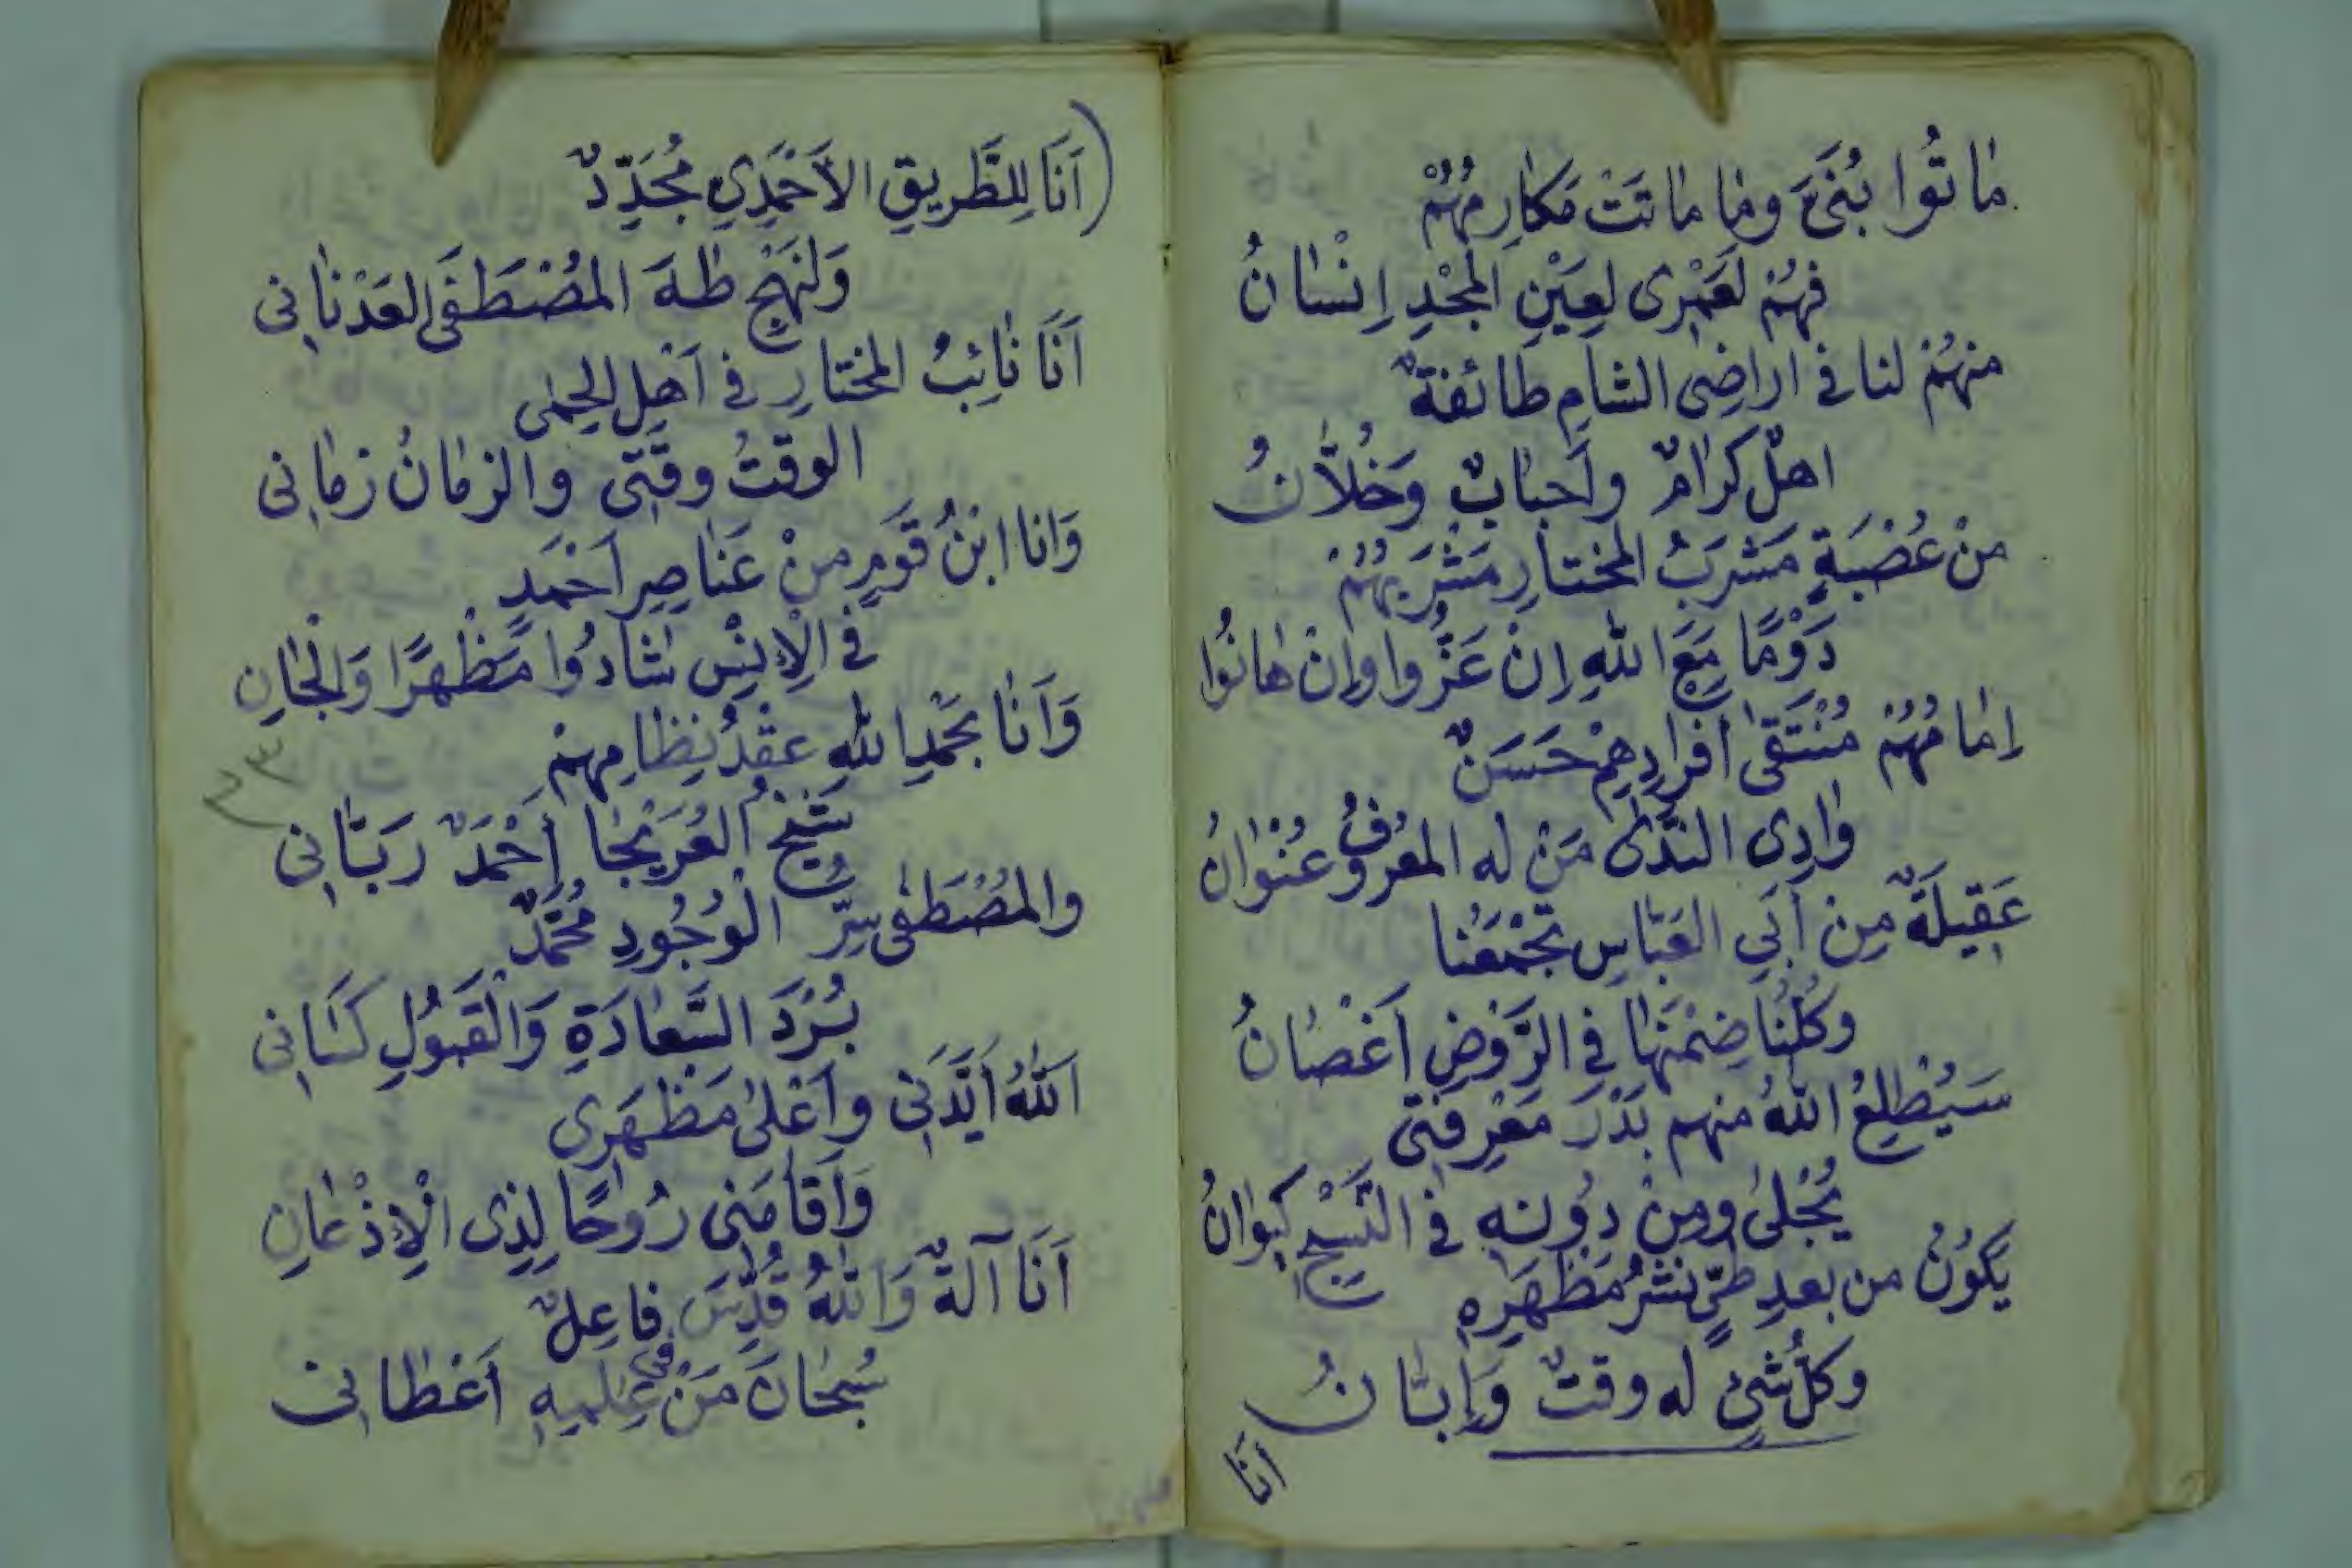 مَاتُوا بُنَيَّ وما ماتَتْ مَكارِمُهُمْ
فهُمْ لَعَمْرِى لِعَيْنِ المَجْدِ اِنْسَانُ
منهُمْ لنا فى اراضِى الشامِ طائفةٌ
اهلٌ كرامٌ وأحبابٌ وَخُلَّانُ
منْ عُصْبَةٍ مَشْرَبُ المختارِ مَشْرَبُهُمْ
دَوْمًا مَعَ اللهِ اِنْ عَزُّوا وإنْ هانُوا
اِمامُهُمْ مُنْتَقَى أفرادِهِمْ حَسَنٌ
وَادِى النَّدَى مَنْ له المعْرُوفُ عُنْوانُ
عَقِيلَةٌ مِنْ أَبِي العَبَّاسِ تَجْمَعُنا
وكُلُّنا ضِمْنَهَا فِى الرَّوْضِ أَغْصَانُ
سَيُطْلِعُ اللهُ منهم بَدْرَ مَعْرِفَتِى
يُجْلَى ومِنْ دُونِهِ فى النَّسْجِ كَيْوَانُ
يَكُونُ من بعدِ طَيٍّ نَشْرُ مَظْهَرِهِ
وكلُّ شَئٍ له وقتٌ وَإِبَّانُ
أنَا
(أَنَا لِلطَّرِيقِ الأَحْمَدِيِ مُجَدِّدٌ
وَلِنَهْجِ طٰهَ المُصْطَفَى العَدْنَانِى
أَنَا نَائِبُ المختارِ فى أَهْلِ الحِمَى
الوقتُ وقْتِى والزمَانُ زمَانِى
وَانا ابْنُ قَومٍ منْ عَنَاصِرِ أَحْمَدٍ
فى الْإِنْسِ شَادُوا مَظْهَرًا وَالْجَانِ
وَأَنَا بحَمْدِ اللهِ عقْدُ نِظَامِهِمْ
شَيْخُ العُرَيْجَا أَحْمَدٌ رَبَّانِى
٢٣
والمُصْطَفَى سِرُّ الْوُجُودِ مُحَمَّدٌ
بُرْدَ السَّعَادَةِ وَالْقَبُولِ كَسَانِى
اَللهُ أَيَّدَنِى وأَعْلَى مَظْهَرِى
وَأَقَامَنِى رُوحًا لِذِى الْإِذْعَانِ
أَنَا آلَةٌ وَاللهُ قُدِّسَ فاعِلٌ
سُبْحَانَ مَنْ فى عِلمِهِ أَعْطَانِى